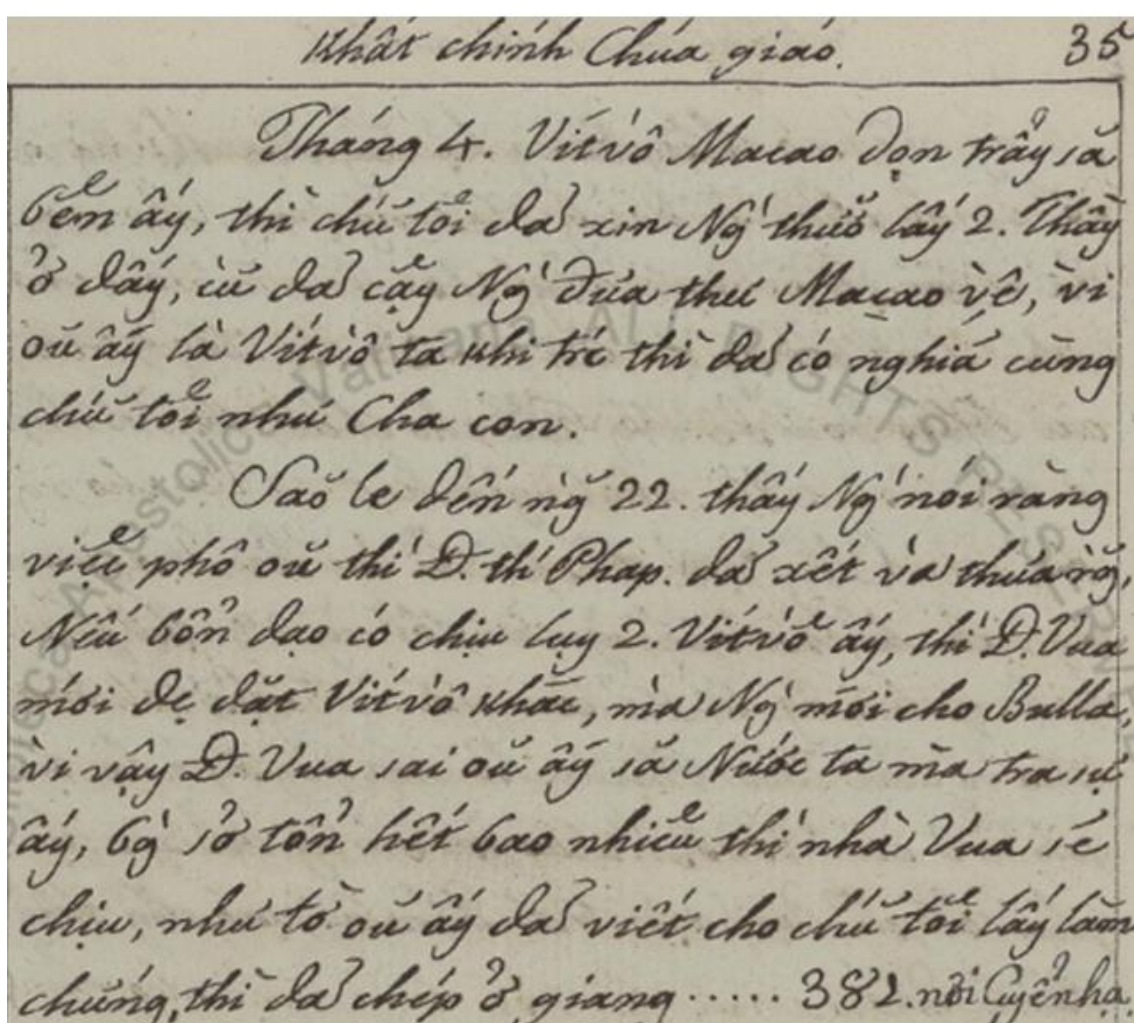 Nhật chinh Chúa giáo. 35
Tháng 4. Vítvồ Macao dọn trẩy sã
bển ấy, thì chũ tôĕi đã xin Ngˀ thưở lấy 2. Thầy
ở đấy, cũ đã cậy Ngˀ đưa thư Macao về, vì
oũ ấy là Vítvồ ta khi trẻ thì đã có nghĩa cùng
chũ tôĕi như Cha con.
Saŏ le đến ngˇ 22. thấy Ngˀ nói rằng
việc phô oũ thì Đ. thˀ Phap. đã xét và thưa rˇg,
Nếu bổn đạo có chịu lụy 2. Vítvồ ấy, thì Đ. Vua
mới đẹ đặt Vítvồ khác, mà Ngˀ mới cho Bulla,
vì vậy Đ. Vua sai oũ ấy sã Nước ta mà tra sự
ấy, bˀg sở tổn hết bao nhiêu thì nhà Vua sẽ
chịu, như tờ oũ ấy đã viết cho chũ tôĕi lấy làm
chứng, thì đã chép ở giang ..... 382. nơi Cuyển hạ